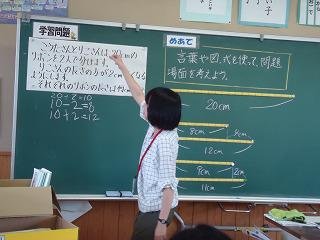 学習問題
こうたさんとりこさんは、20cmの
リボンを2人で分けます。
りこさんの長さの方が2cm
ようにします。
それぞれのリボンの長さは
20÷2=10
10-2=8
10+2=12
めあて
言葉や図、式を使って、問題
場面を考えよう。
20cm
8cm
12cm
9cm 2cm
11cm